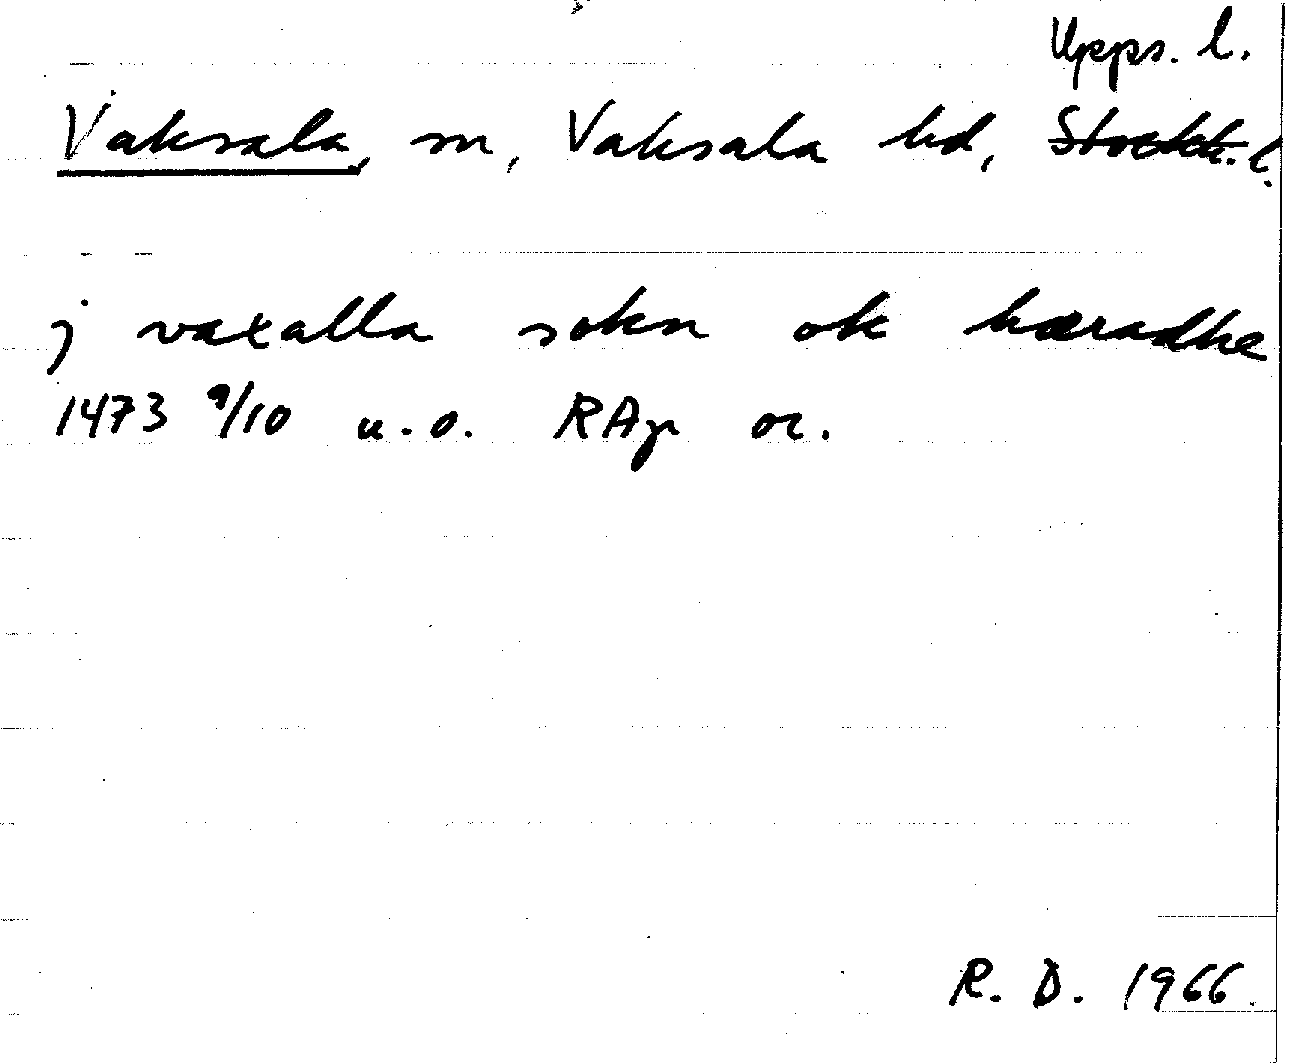 Upps. l.
Vaksala, sn, Vaksala hd, Stockh. l.
j vaxalla sokn ok hæradhe
1473 9/10 u.o. RAp or.
R. D. 1966.